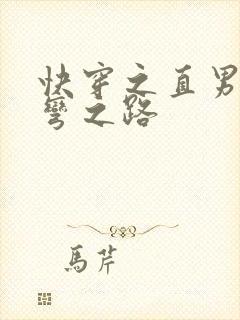 快穿之直男
彎之路
馬芹